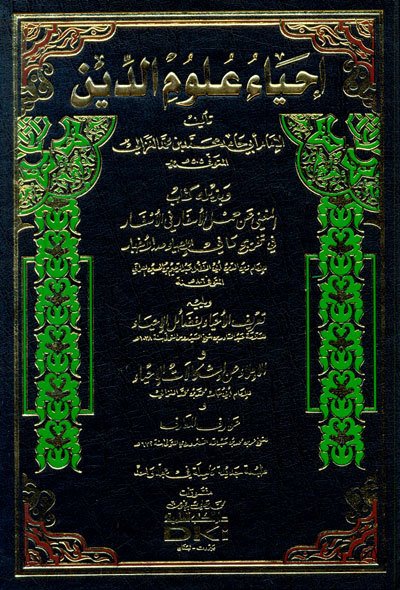 إحياء علوم الدين
تأليف
الإمام أبي حامد محمد بن محمد الغزالي
المتوفى سنة ٥٠٥ هـ
وبذيله كتاب
المغني عن حمل الأسفار في الأسفار
في تخريج ما في الإحياء من الأخبار
المتوفى سنة ٨٠٦ هـ
ويليه
تعريف الأحياء بفضائل الإحياء
و
الإملاء عن إشكالات الإحياء
للإمام أبي حامد محمد بن محمد الغزالي
و
عوارف المعارف
طبعة جديدة كاملة في مجلد واحد
منشورات
دار الكتب العلمية
DKi
بيروت - لبنان